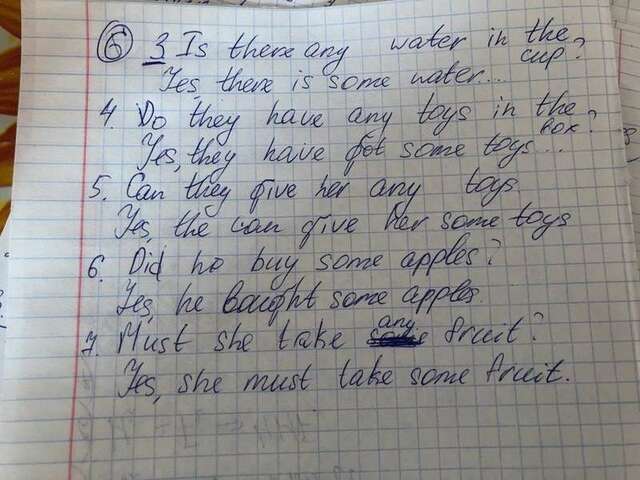 6 3 Is there any water in the
cup?
Yes, there is some water...
4. Do they have any toys in the
box?
Yes, they have got some toys...
5. Can they give her any toys.
Yes, the can give her some toys
6. Did he buy some apples?
Yes, he bought some apples.
7. Must she take any fruit?
Yes, she must take some fruit.